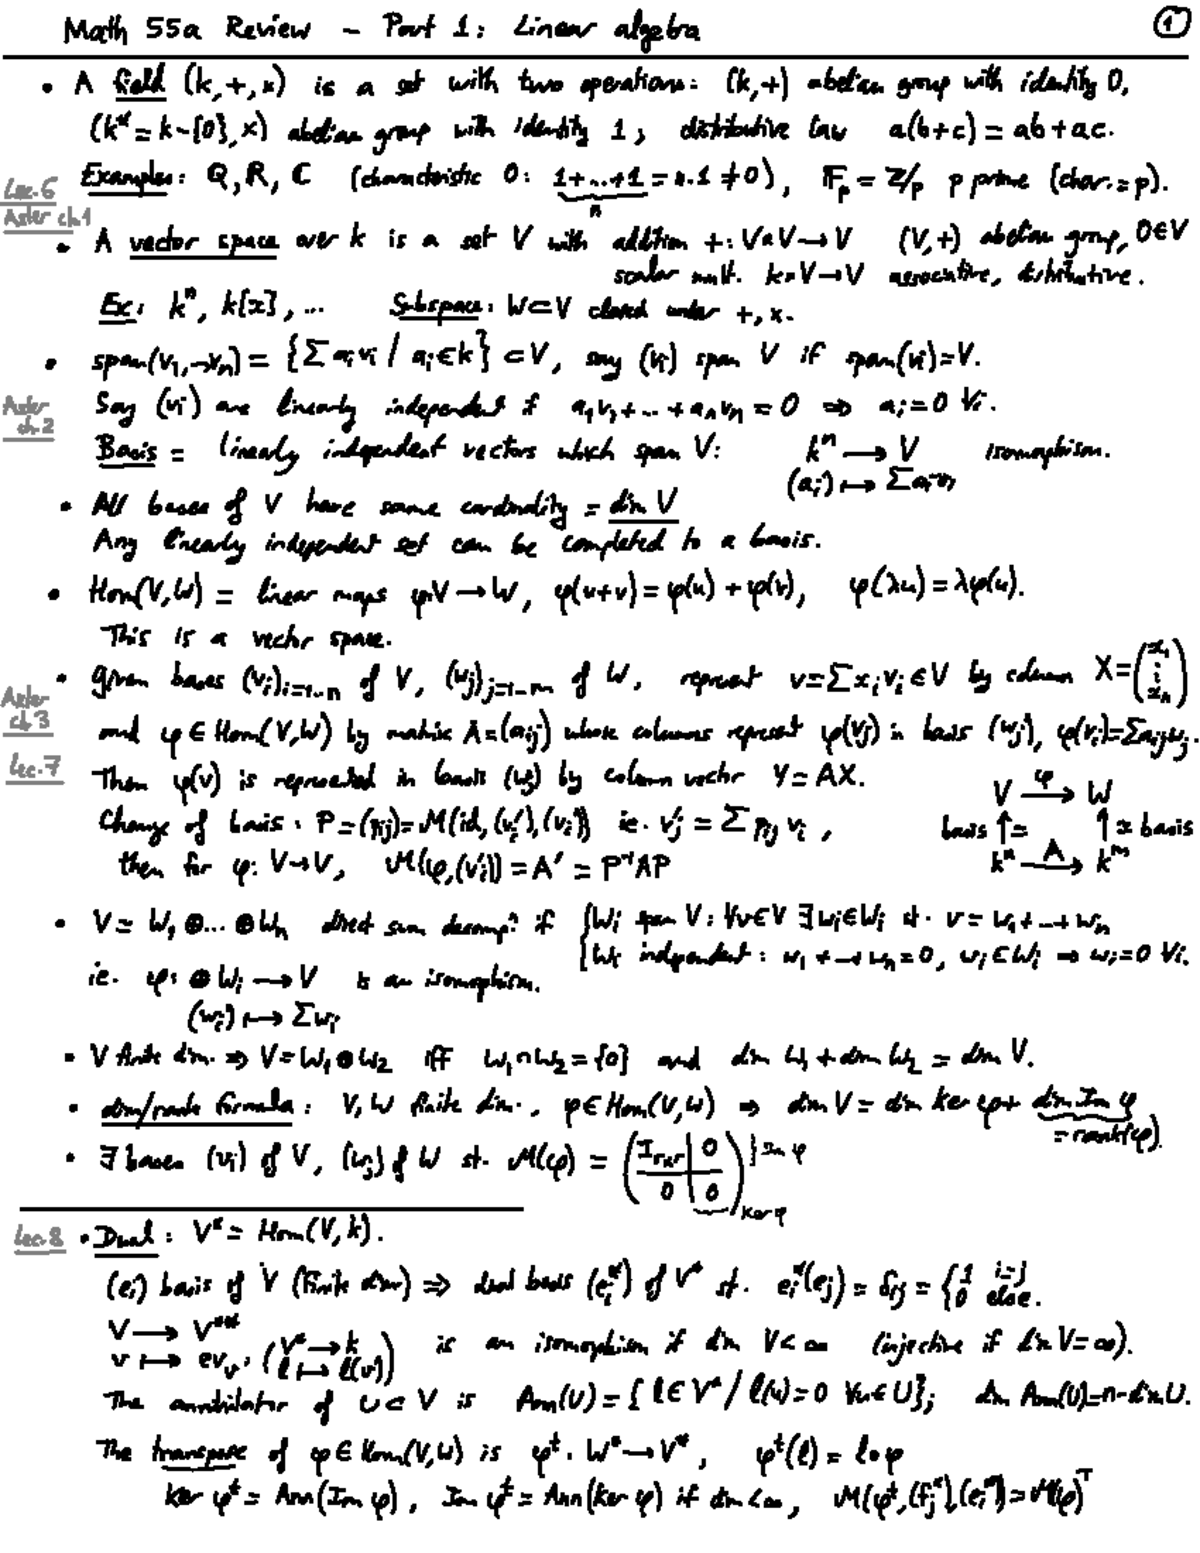 Math 55a Review - Part 1: Linear algebra ①
• A field (k,+,×) is a set with two operations: (k,+) abelian group with identity 0,
(k* = k-{0},×) abelian group with identity 1, distributive law a(b+c) = ab+ac.
Examples: Q, R, C (characteristic 0: 1+...+1 = n.1 ≠ 0), F_p = Z/p p prime (char. = p).
n
Lec. 6
Axler ch. 1
• A vector space over k is a set V with addition +: V×V → V (V,+) abelian group, 0∈V
scalar mult. k×V → V associative, distributive.
Ex: k^n, k[x], ... Subspace: W⊂V closed under +, ×.
• span(v_1,...,v_n) = {Σ a_i v_i / a_i ∈ k} ⊂ V, say (v_i) span V if span(v_i) = V.
Axler ch. 2
Say (v_i) are linearly independent if a_1v_1+...+a_nv_n = 0 ⇒ a_i = 0 ∀i.
Basis = linearly independent vectors which span V: k^n → V isomorphism.
(a_i) ↦ Σ a_i v_i
• All bases of V have same cardinality = dim V
Any linearly independent set can be completed to a basis.
• Hom(V,W) = linear maps φ:V → W, φ(u+v) = φ(u) + φ(v), φ(λu) = λφ(u).
This is a vector space.
• Given bases (v_i)_{i=1...n} of V, (w_j)_{j=1...m} of W, represent v = Σ x_i v_i ∈ V by column X = (x_1 ⋮ x_n)
Axler ch 3
and φ ∈ Hom(V,W) by matrix A = (a_ij) whose columns represent φ(v_j) in basis (w_j), φ(v_i) = Σ a_ij w_j.
Lec. 7
Then φ(v) is represented in basis (w_j) by column vector Y = AX.
V —φ→ W
Change of basis: P = (p_ij) = M(id, (v_i'), (v_i)) ie. v_j' = Σ p_ij v_i,
basis ↑≃ ↑≃ basis
then for φ: V→V, M(φ,(v_i')) = A' = P⁻¹AP
k^n —A→ k^m
• V = W_1 ⊕ ... ⊕ W_n direct sum decomp. if { W_i span V: ∀v∈V ∃w_i∈W_i st. v = w_1+...+w_n
{ W_i independent: w_1+...+w_n = 0, w_i ∈ W_i ⇒ w_i = 0 ∀i.
ie. φ: ⊕ W_i → V is an isomorphism.
(w_i) ↦ Σ w_i
• V finite dim. ⇒ V = W_1 ⊕ W_2 iff W_1 ∩ W_2 = {0} and dim W_1 + dim W_2 = dim V.
• dim/rank formula: V, W finite dim., φ ∈ Hom(V,W) ⇒ dim V = dim Ker φ + dim Im φ
= rank(φ).
• ∃ bases (v_i) of V, (w_j) of W st. M(φ) = ( I_{r×r} | 0 ) } Im φ
( 0 | 0 )
Ker φ
Lec. 8 • Dual: V* = Hom(V,k).
(e_i) basis of V (finite dim) ⇒ dual basis (e_i*) of V* st. e_i*(e_j) = δ_ij = { 1 i=j
0 else.
V → V**
v ↦ ev_v: (V* → k
ℓ ↦ ℓ(v)) is an isomorphism if dim V < ∞ (injective if dim V = ∞).
The annihilator of U ⊂ V is Ann(U) = {ℓ ∈ V* / ℓ(u) = 0 ∀u ∈ U}; dim Ann(U) = n - dim U.
The transpose of φ ∈ Hom(V,W) is φ^t: W* → V*, φ^t(ℓ) = ℓ∘φ
Ker φ^t = Ann(Im φ), Im φ^t = Ann(Ker φ) if dim < ∞, M(φ^t, (f_j*), (e_i*)) = M(φ)^T